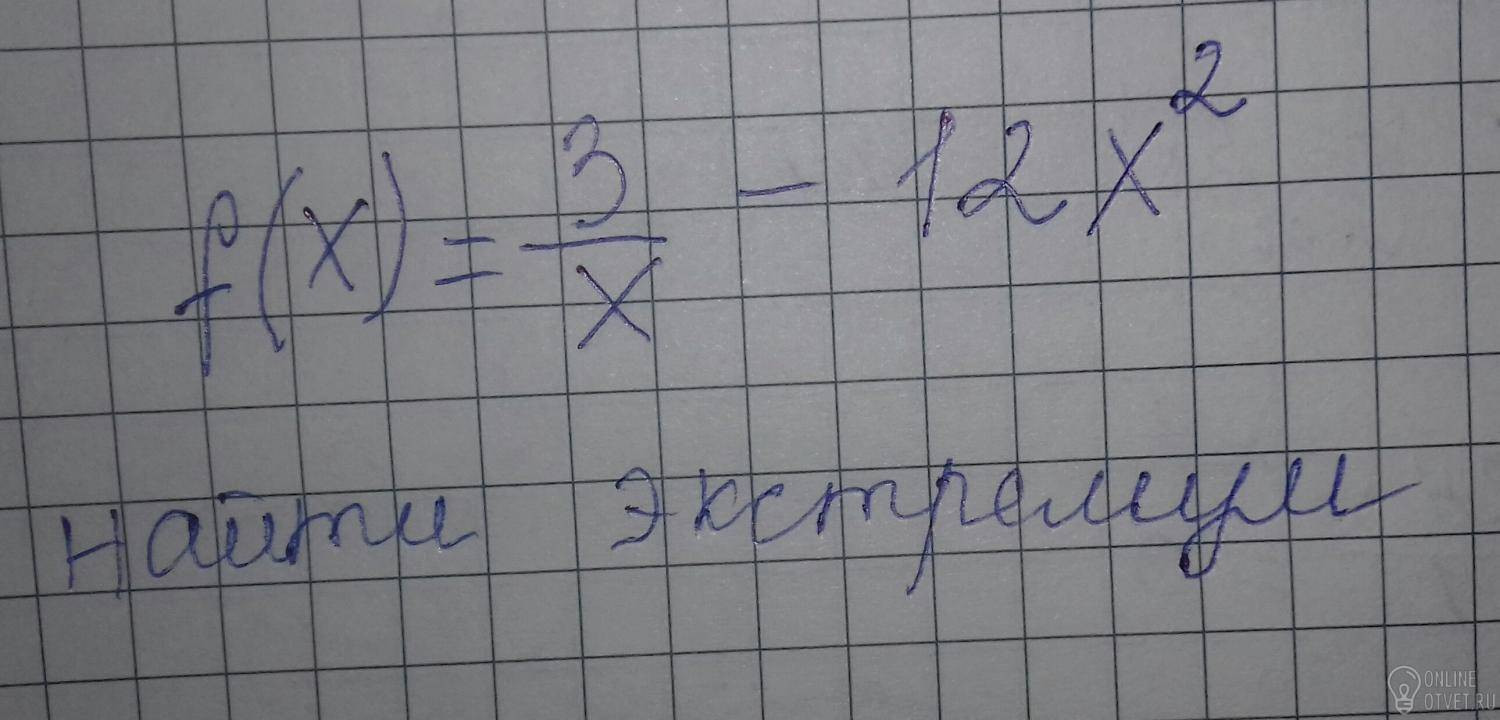 f(x) = 3/x - 12x²
найти экстремум
ONLINE
OTVET.RU